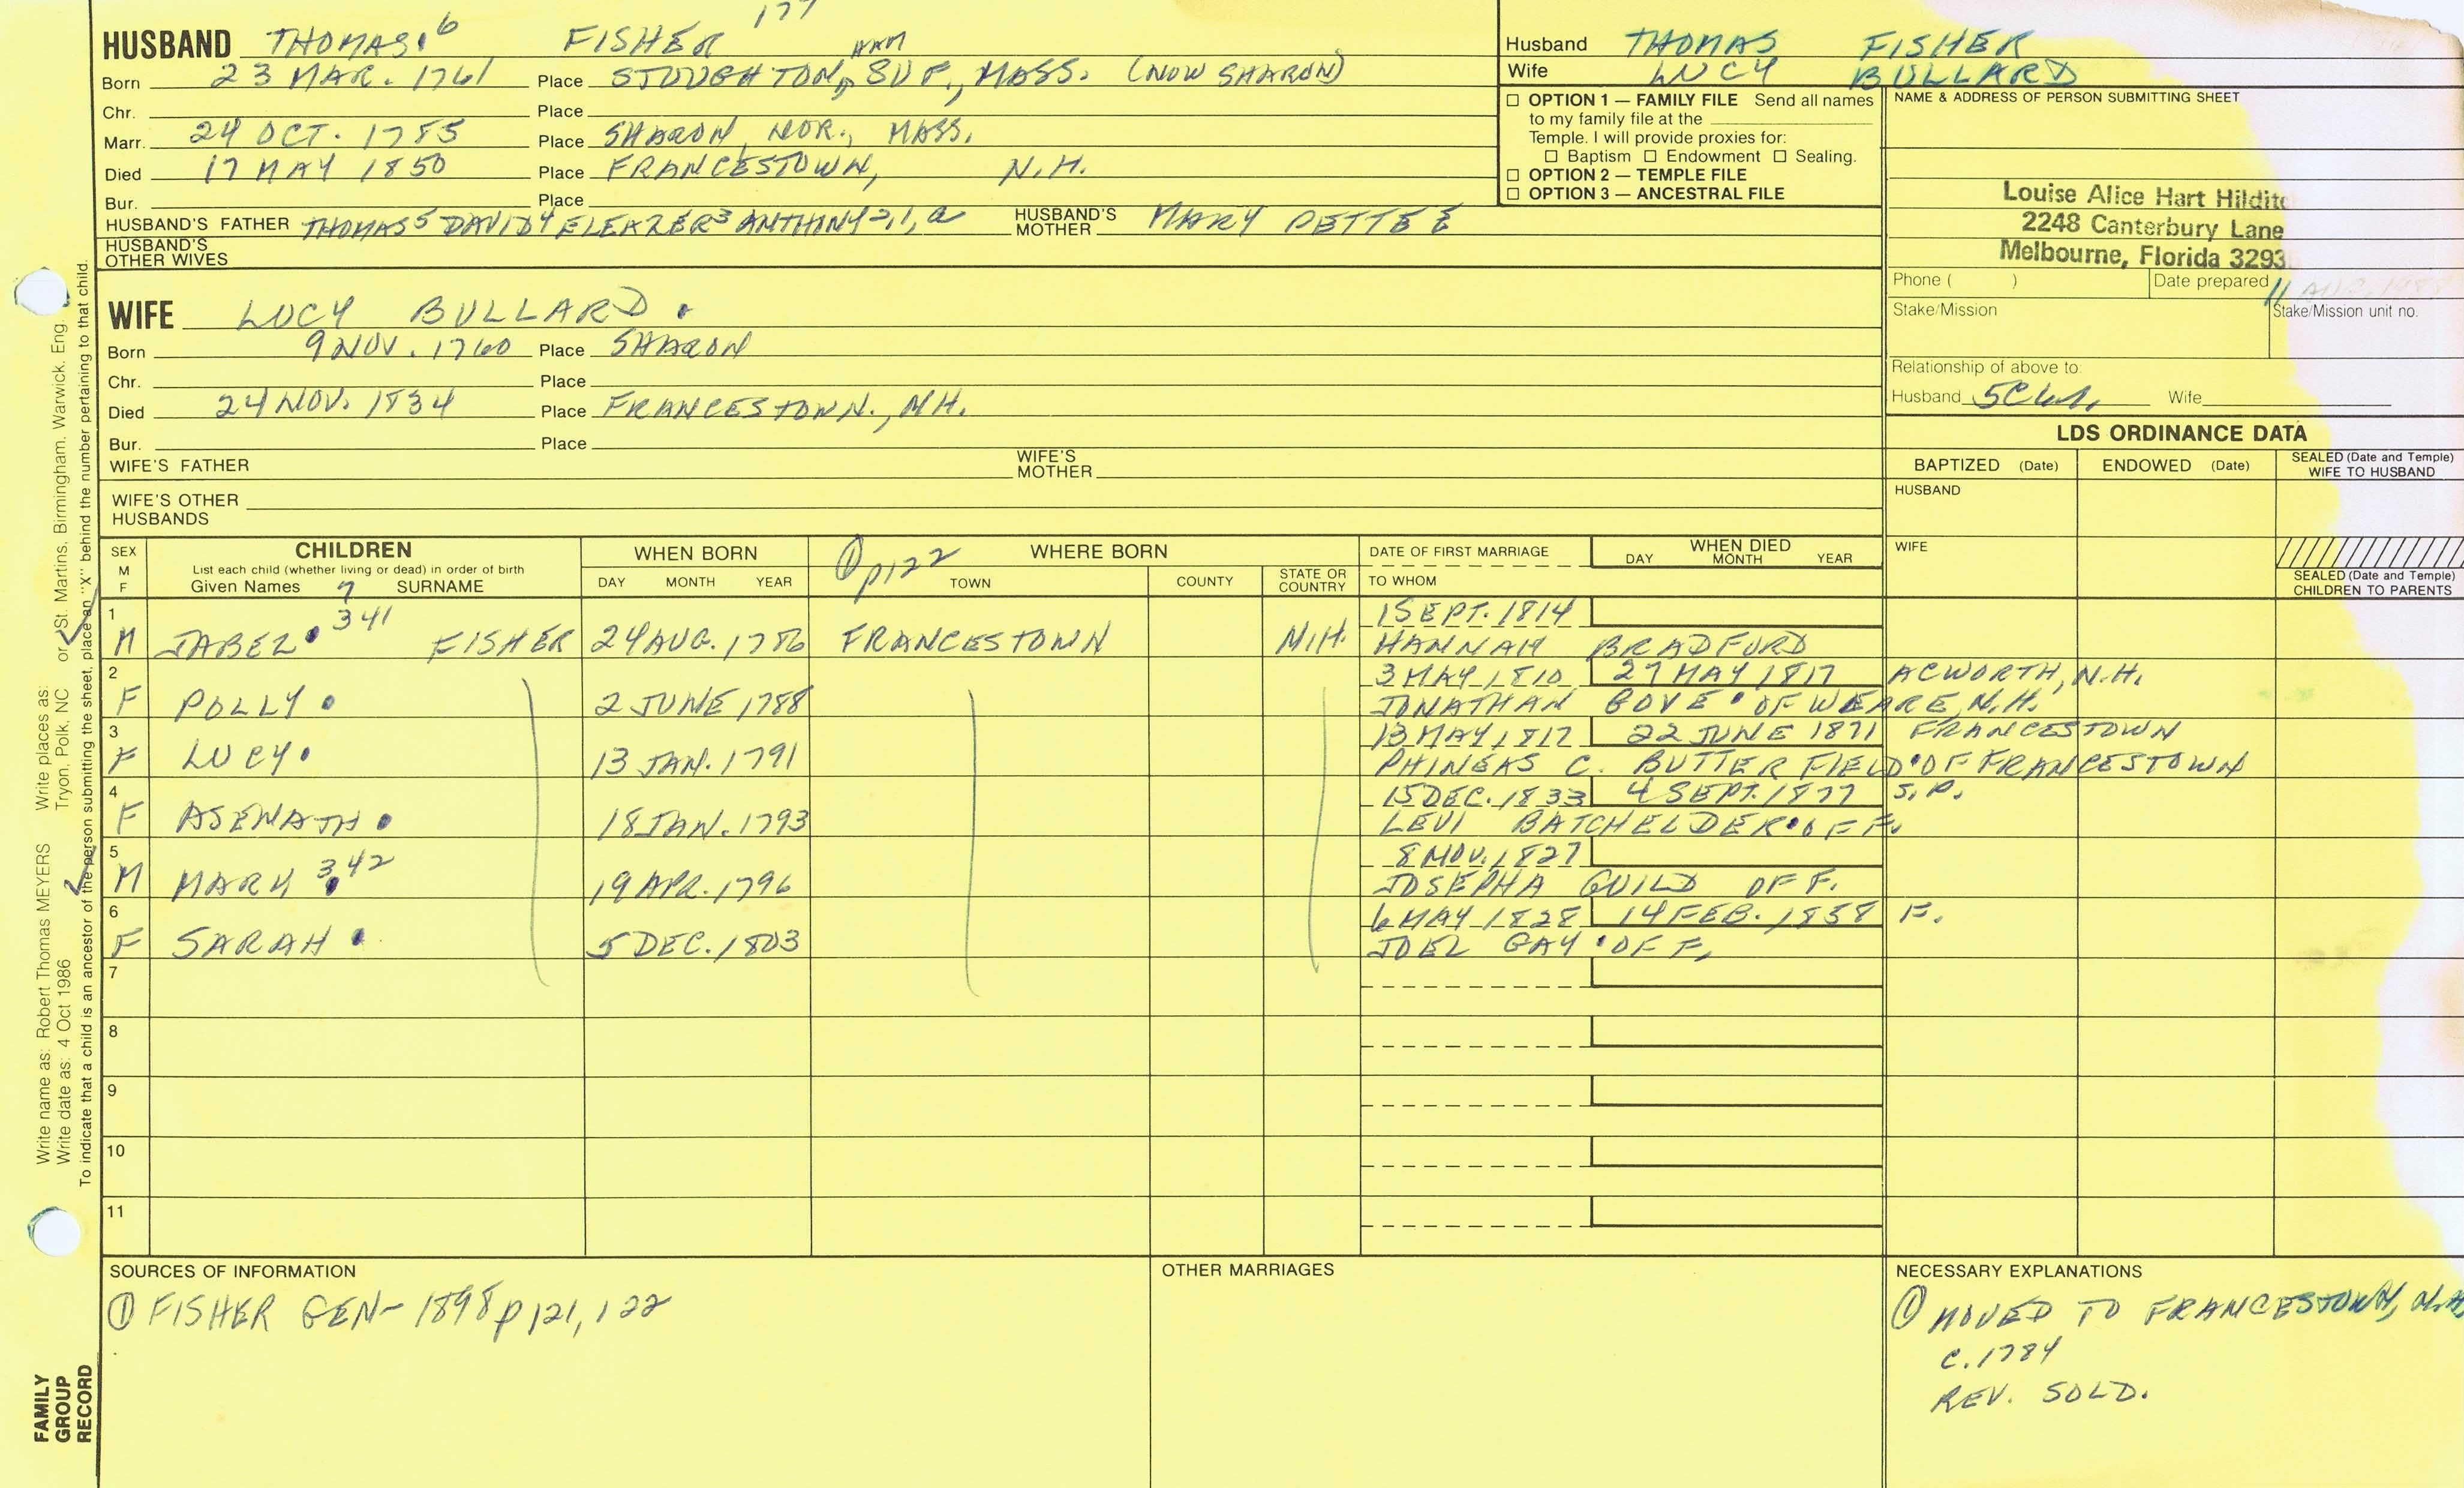 177
HUSBAND THOMAS.6 FISHER
Born 23 MAR. 1761 Place STOUGHTON, SUF., MASS. (NOW SHARON)
Chr. Place
Marr. 24 OCT. 1785 Place SHARON, NOR., MASS.
Died 17 MAY 1850 Place FRANCESTOWN, N.H.
Bur. Place
HUSBAND'S FATHER THOMAS5 DAVID4 ELEAZER3 ANTHINY2,1,a HUSBAND'S MOTHER MARY PETTEE
HUSBAND'S OTHER WIVES
Husband THOMAS FISHER
Wife LUCY BULLARD
☐ OPTION 1 — FAMILY FILE Send all names
to my family file at the
Temple. I will provide proxies for:
☐ Baptism ☐ Endowment ☐ Sealing.
☐ OPTION 2 — TEMPLE FILE
☐ OPTION 3 — ANCESTRAL FILE
NAME & ADDRESS OF PERSON SUBMITTING SHEET
Louise Alice Hart Hildit
2248 Canterbury Lane
Melbourne, Florida 3293
Phone ( ) Date prepared 11
Stake/Mission Stake/Mission unit no.
Relationship of above to:
Husband Wife
WIFE LUCY BULLARD.
Born 9 NOV. 1760 Place SHARON
Chr. Place
Died 24 NOV. 1834 Place FRANCESTOWN., NH.
Bur. Place
WIFE'S FATHER WIFE'S MOTHER
WIFE'S OTHER HUSBANDS
LDS ORDINANCE DATA
BAPTIZED (Date) ENDOWED (Date) SEALED (Date and Temple) WIFE TO HUSBAND
HUSBAND
WIFE
SEALED (Date and Temple) CHILDREN TO PARENTS
SEX M F
CHILDREN
List each child (whether living or dead) in order of birth
Given Names 7 SURNAME
WHEN BORN
DAY MONTH YEAR
① p122 WHERE BORN
TOWN COUNTY STATE OR COUNTRY
DATE OF FIRST MARRIAGE
TO WHOM
WHEN DIED
DAY MONTH YEAR
1 341 1 SEPT. 1814
M JABEZ. FISHER 24 AUG. 1786 FRANCESTOWN N.H. HANNAH BRADFORD
2 3 MAY 1810 27 MAY 1817 ACWORTH, N.H.
F POLLY. 2 JUNE 1788 JONATHAN GOVE. OF WEARE, N.H.
3 13 MAY 1817 22 JUNE 1871 FRANCESTOWN
F LUCY. 13 JAN. 1791 PHINEAS C. BUTTERFIELD. OF FRANCESTOWN
4 15 DEC. 1833 4 SEPT. 1877 S.P.
F ASENATH. 18 JAN. 1793 LEVI BATCHELDER. OF F.
5 342 8 NOV. 1827
M MARK 19 APR. 1796 JOSEPHA GUILD OF F.
6 6 MAY 1828 14 FEB. 1858 F.
F SARAH. 5 DEC. 1803 JOEL GAY. OF F.
7
8
9
10
11
SOURCES OF INFORMATION
① FISHER GEN- 1898 p 121, 122
OTHER MARRIAGES
NECESSARY EXPLANATIONS
① MOVED TO FRANCESTOWN, N.H.
C. 1784
REV. SOLD.
Write name as: Robert Thomas MEYERS Write places as: or St. Martins, Birmingham, Warwick, Eng.
Write date as: 4 Oct 1986 Tryon, Polk, NC
To indicate that a child is an ancestor of the person submitting the sheet, place an "X" behind the number pertaining to that child.
FAMILY
GROUP
RECORD